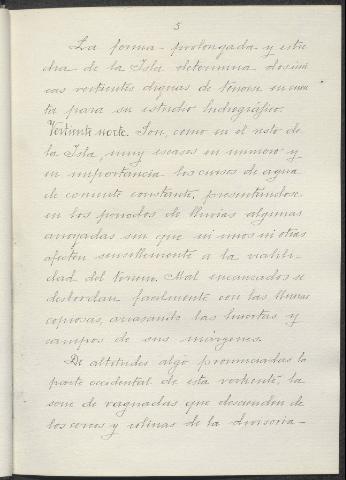 5
La forma prolongada y estre
cha de la Isla determina dos úni
cas vertientes dignas de tenerse en cuen
ta para su estudio hidrográfico.
Vertiente norte. Son, como en el resto de
la Isla, muy escasos en numero y
en importancia los cursos de agua
de corriente constante, presentándose
en los periodos de lluvias algunas
arroyadas sin que ni unos ni otras
afecten sensiblemente a la viabili-
dad del terreno. Mal encauzados se
desbordan facilmente con las lluvias
copiosas, arrasando las huertas y
campos de sus márgenes.
De altitudes algo pronunciadas la
parte occidental de esta vertiente, la
serie de vaguadas que descienden de
los cerros y colinas de la divisoria-